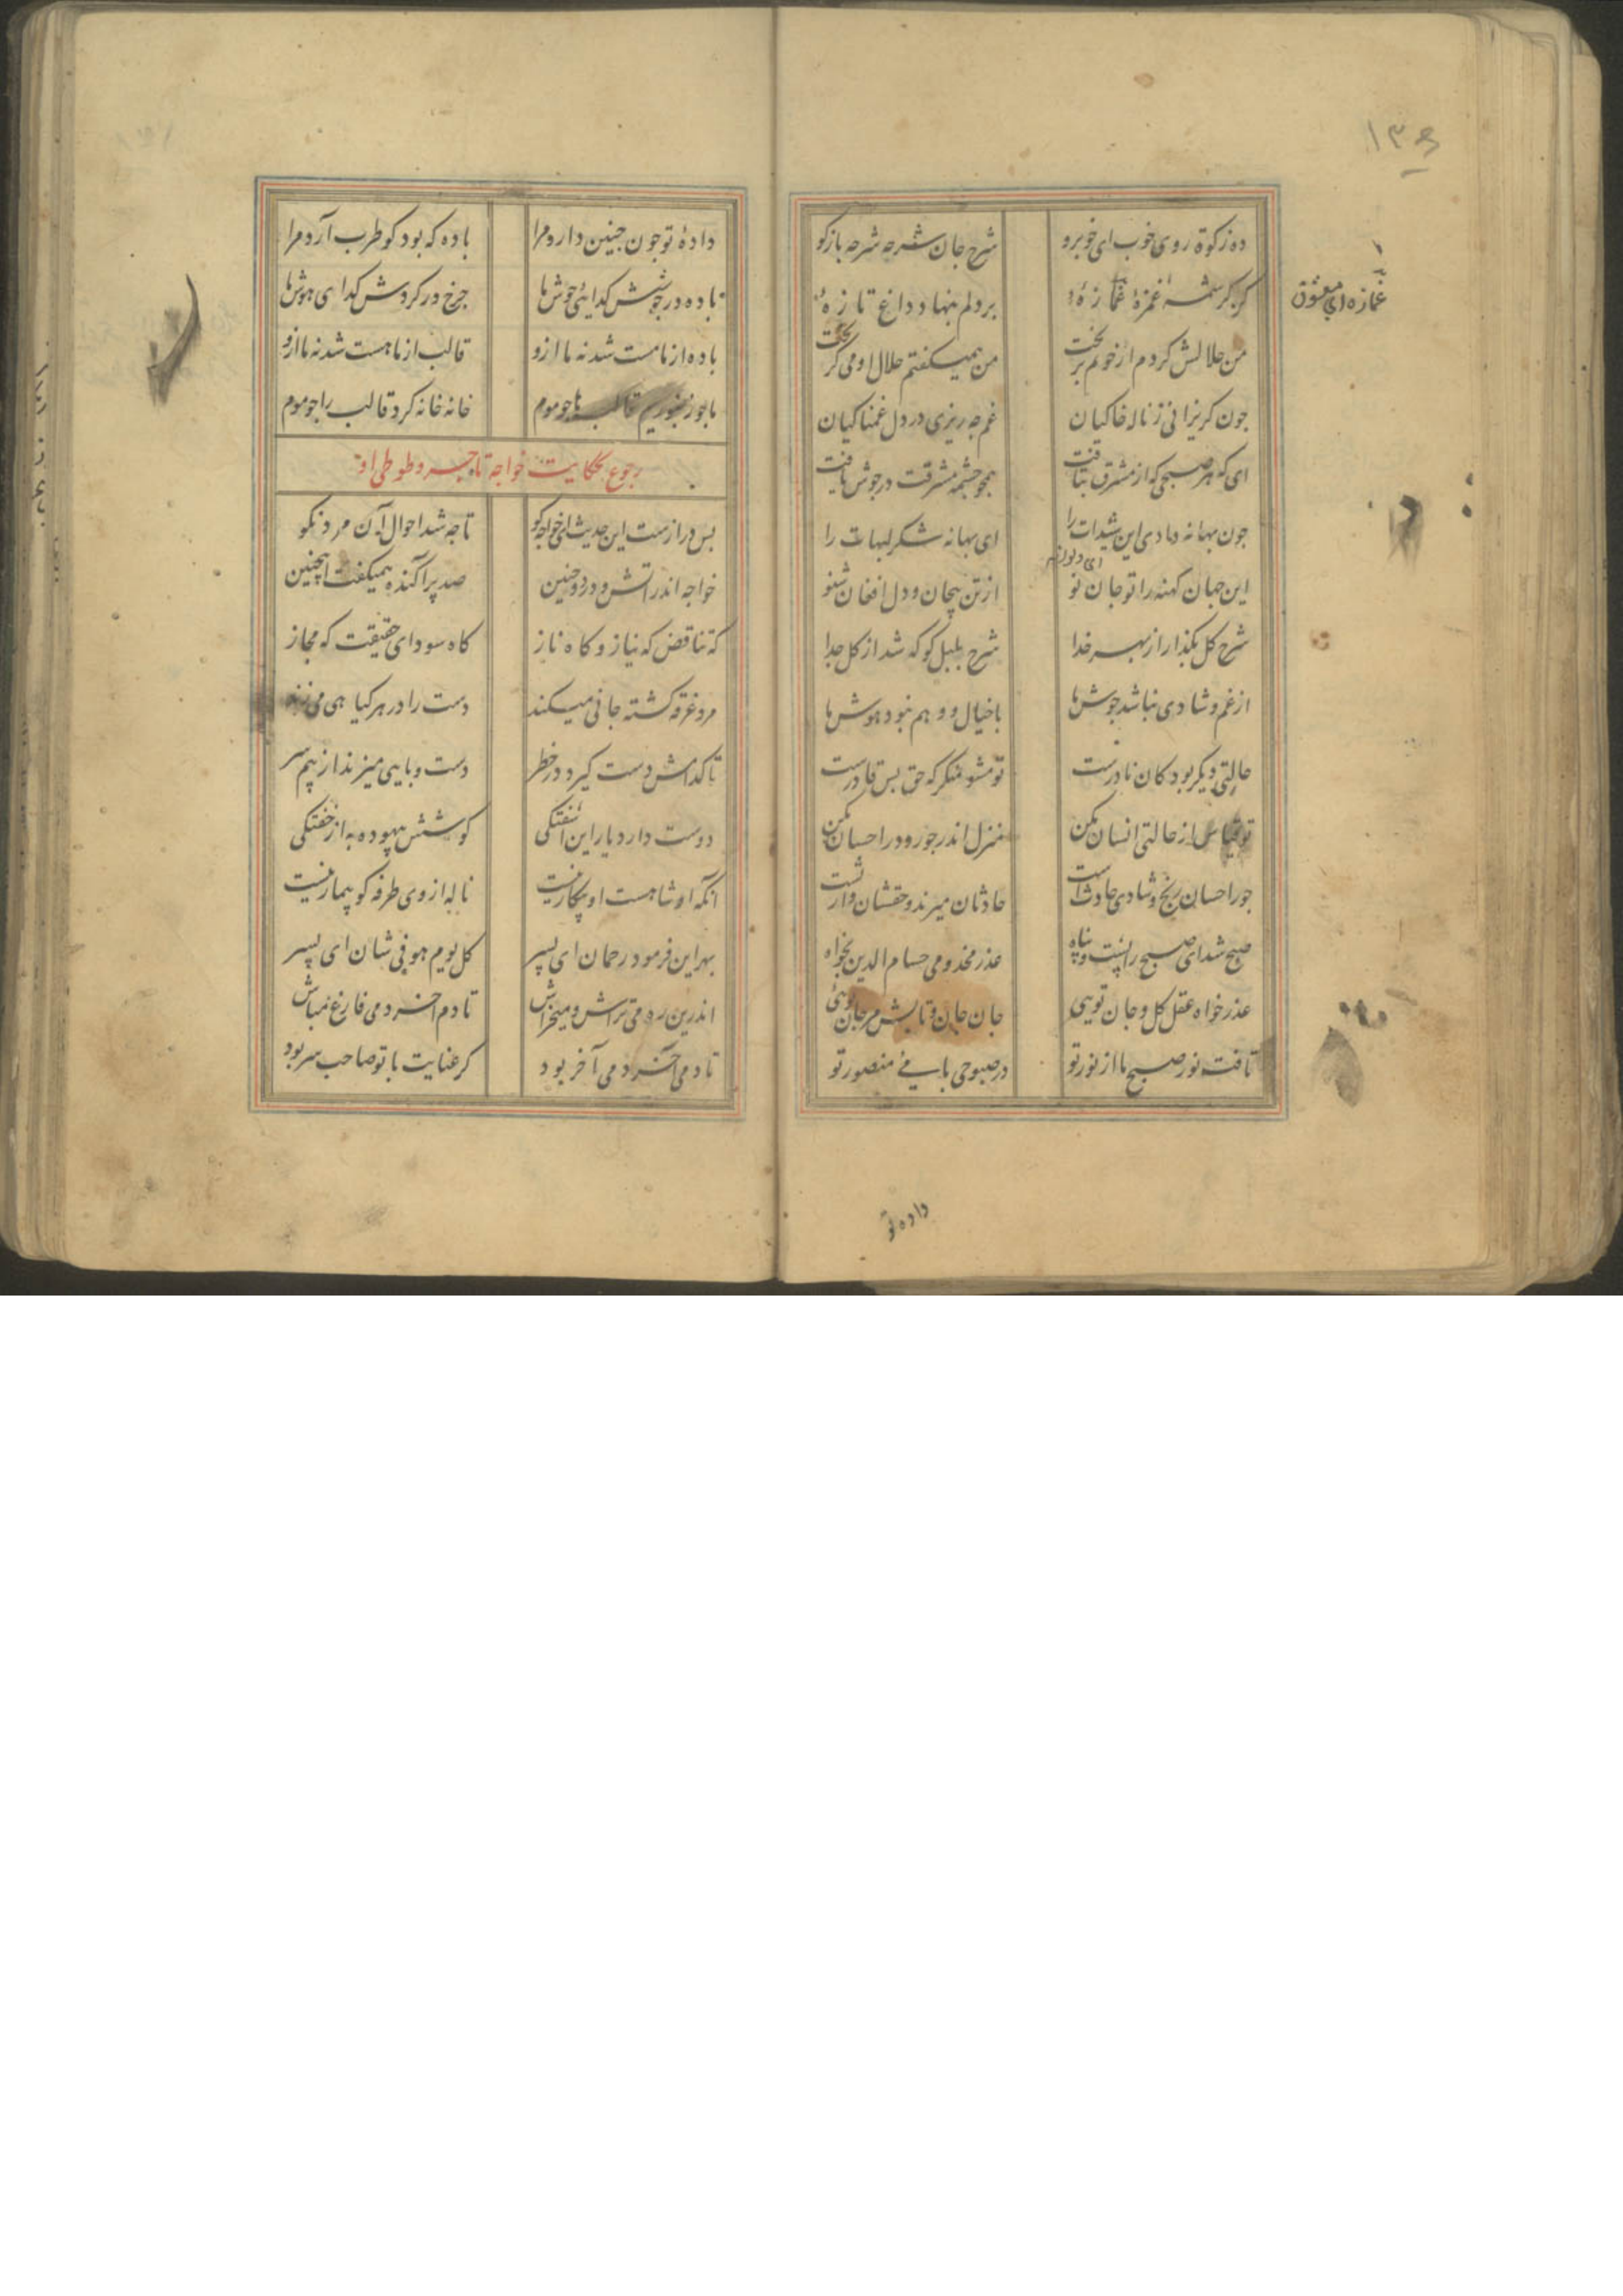 ۱۳۵
ده زکوة روی خوب ای خوبرو شرح جان شرحه شرحه بازکو
کز کرشمه غمزهٔ غمازهٔ بر دلم بنهاد داغ تازهٔ
غمازه ای معشوق
من حلالش کردم ار خونم بریخت من همیکفتم حلال او می کریخت
جون کریزانی ز ناله خاکیان غم جه ریزی در دل غمناکیان
ای که هر صبحی که از مشرق بتافت همجو جشمه مشرقت در جوش یافت
جون بهانه دادی این شیدات را ای بهانه شکر لبهات را
این جهان کهنه را تو جان نو از تن بیجان و دل افغان شنو
شرح کل بکذار از بهر خدا شرح بلبل کو که شد از کل جدا
از غم و شادی نباشد جوش ما با خیال و وهم نبود هوش ما
حالتی دیکر بود کان نادرست تو مشو منکر که حق بس قادرست
تو قیاس از حالتی انسان مکن منزل اندر جور و در احسان مکن
جور احسان رنج و شادی حادثست حادثان میرند و حقشان وارثست
صبح شد ای صبح را پشت و پناه عذر مخدومی حسام الدین بخواه
عذر خواه عقل کل و جان تویی جان جان و تابش مرجان تویی
تافت نور صبح ما از نور تو در صبوحی با می منصور تو
داده تو
دادهٔ تو جون جنین دارد مرا باده که بود کو طرب آرد مرا
باده در جوشش کدای جوش ما جرخ در کردش کدای هوش ما
باده از ما مست شد نه ما ازو قالب از ما هست شد نه ما ازو
ما جو زنبوریم قالب ها جو موم خانه خانه کرد قالب را جو موم
رجوع بحکایت خواجه تاجر و طوطی او
بس درازست این حدیث ای خواجه کو تا جه شد احوال آن مرد نکو
خواجه اندر آتش و درد و حنین صد پراکنده همیکفت اینچنین
که تناقض که نیاز و کاه ناز کاه سودای حقیقت که مجاز
مرد غرقه کشته جانی میکند دست را در هر کیاهی می زند
تا کدامش دست کیرد در خطر دست و پایی میزند از بیم سر
دوست دارد یار این آشفتکی کوشش بیهوده به از خفتکی
انکه او شاهست او بیکار نیست ناله از وی طرفه کو بیمار نیست
بهر این فرمود رحمان ای پسر کل یوم هو فی شان ای پسر
اندرین ره می تراش و میخراش تا دم آخر دمی فارغ مباش
تا دمی آخر دمی آخر بود کر عنایت با تو صاحب سر بود